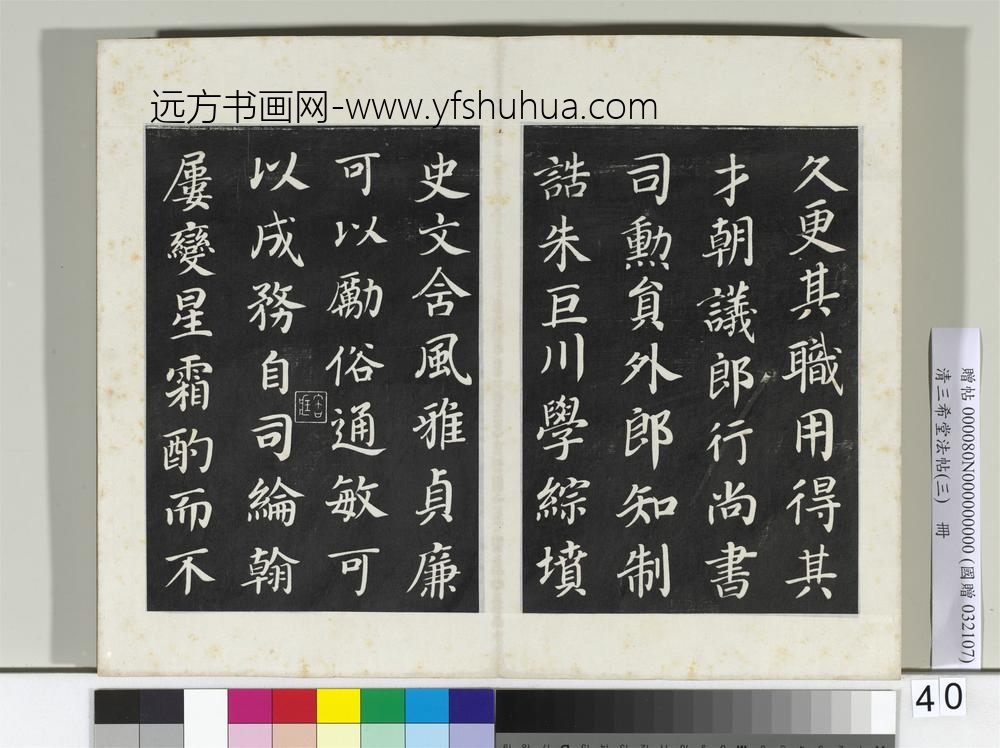 远方书画网-www.yfshuhua.com
久更其職用得其
才朝議郎行尚書
司勳負外郎知制
誥朱巨川學綜墳
史文含風雅貞廉
可以勵俗通敏可
以成務自司綸翰
屢變星霜酌而不
贈帖 000080N000000000 (國贈 032107)
清三希堂法帖(三) 冊
40